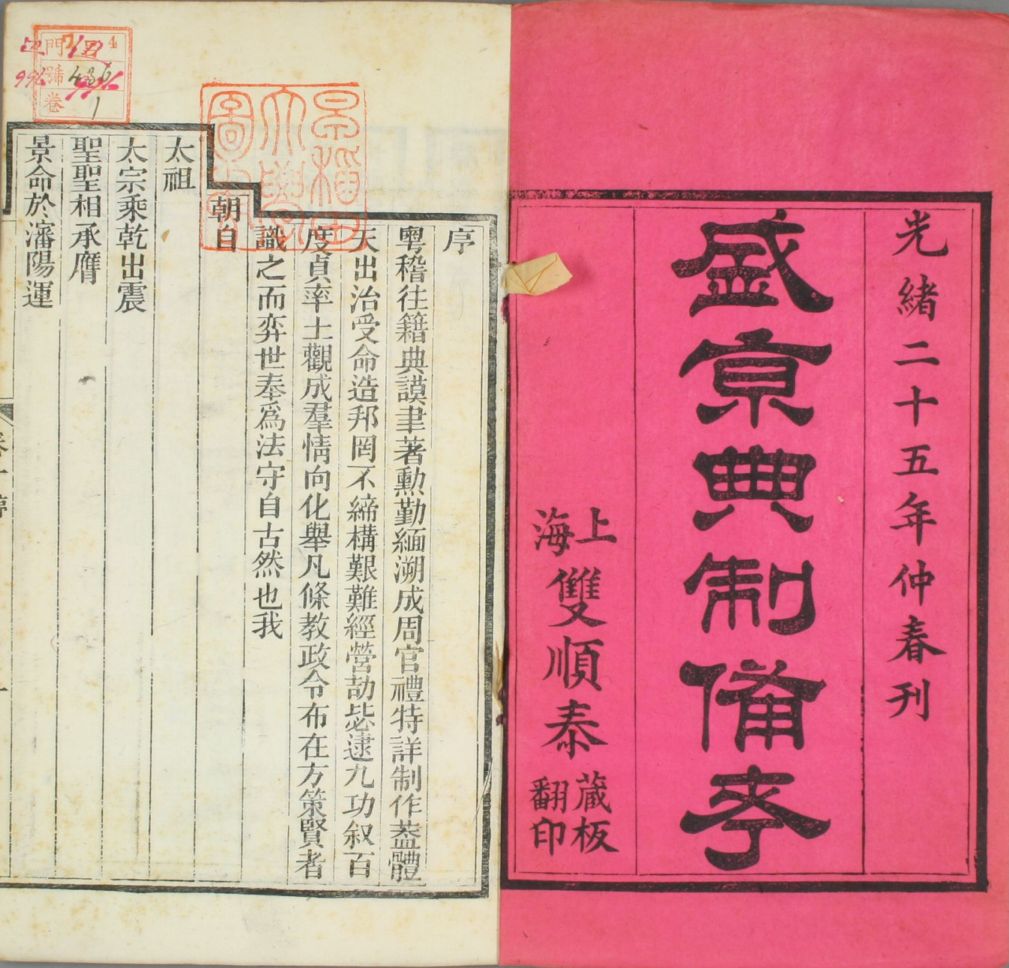 光緒二十五年仲春刊
盛京典制備考
上海
雙順泰
藏板
翻印
序
粵稽往籍典謨聿著勳勤緬溯成周官禮特詳制作葢體
天出治受命造邦罔不締構艱難經營劼毖逮九功叙百
度貞率土觀成羣情向化舉凡條教政令布在方策賢者
識之而弈世奉爲法守自古然也我
朝自
太祖
太宗乘乾出震
聖聖相承膺
景命於瀋陽運
早稻田
大學
圖書
門
號
卷
1